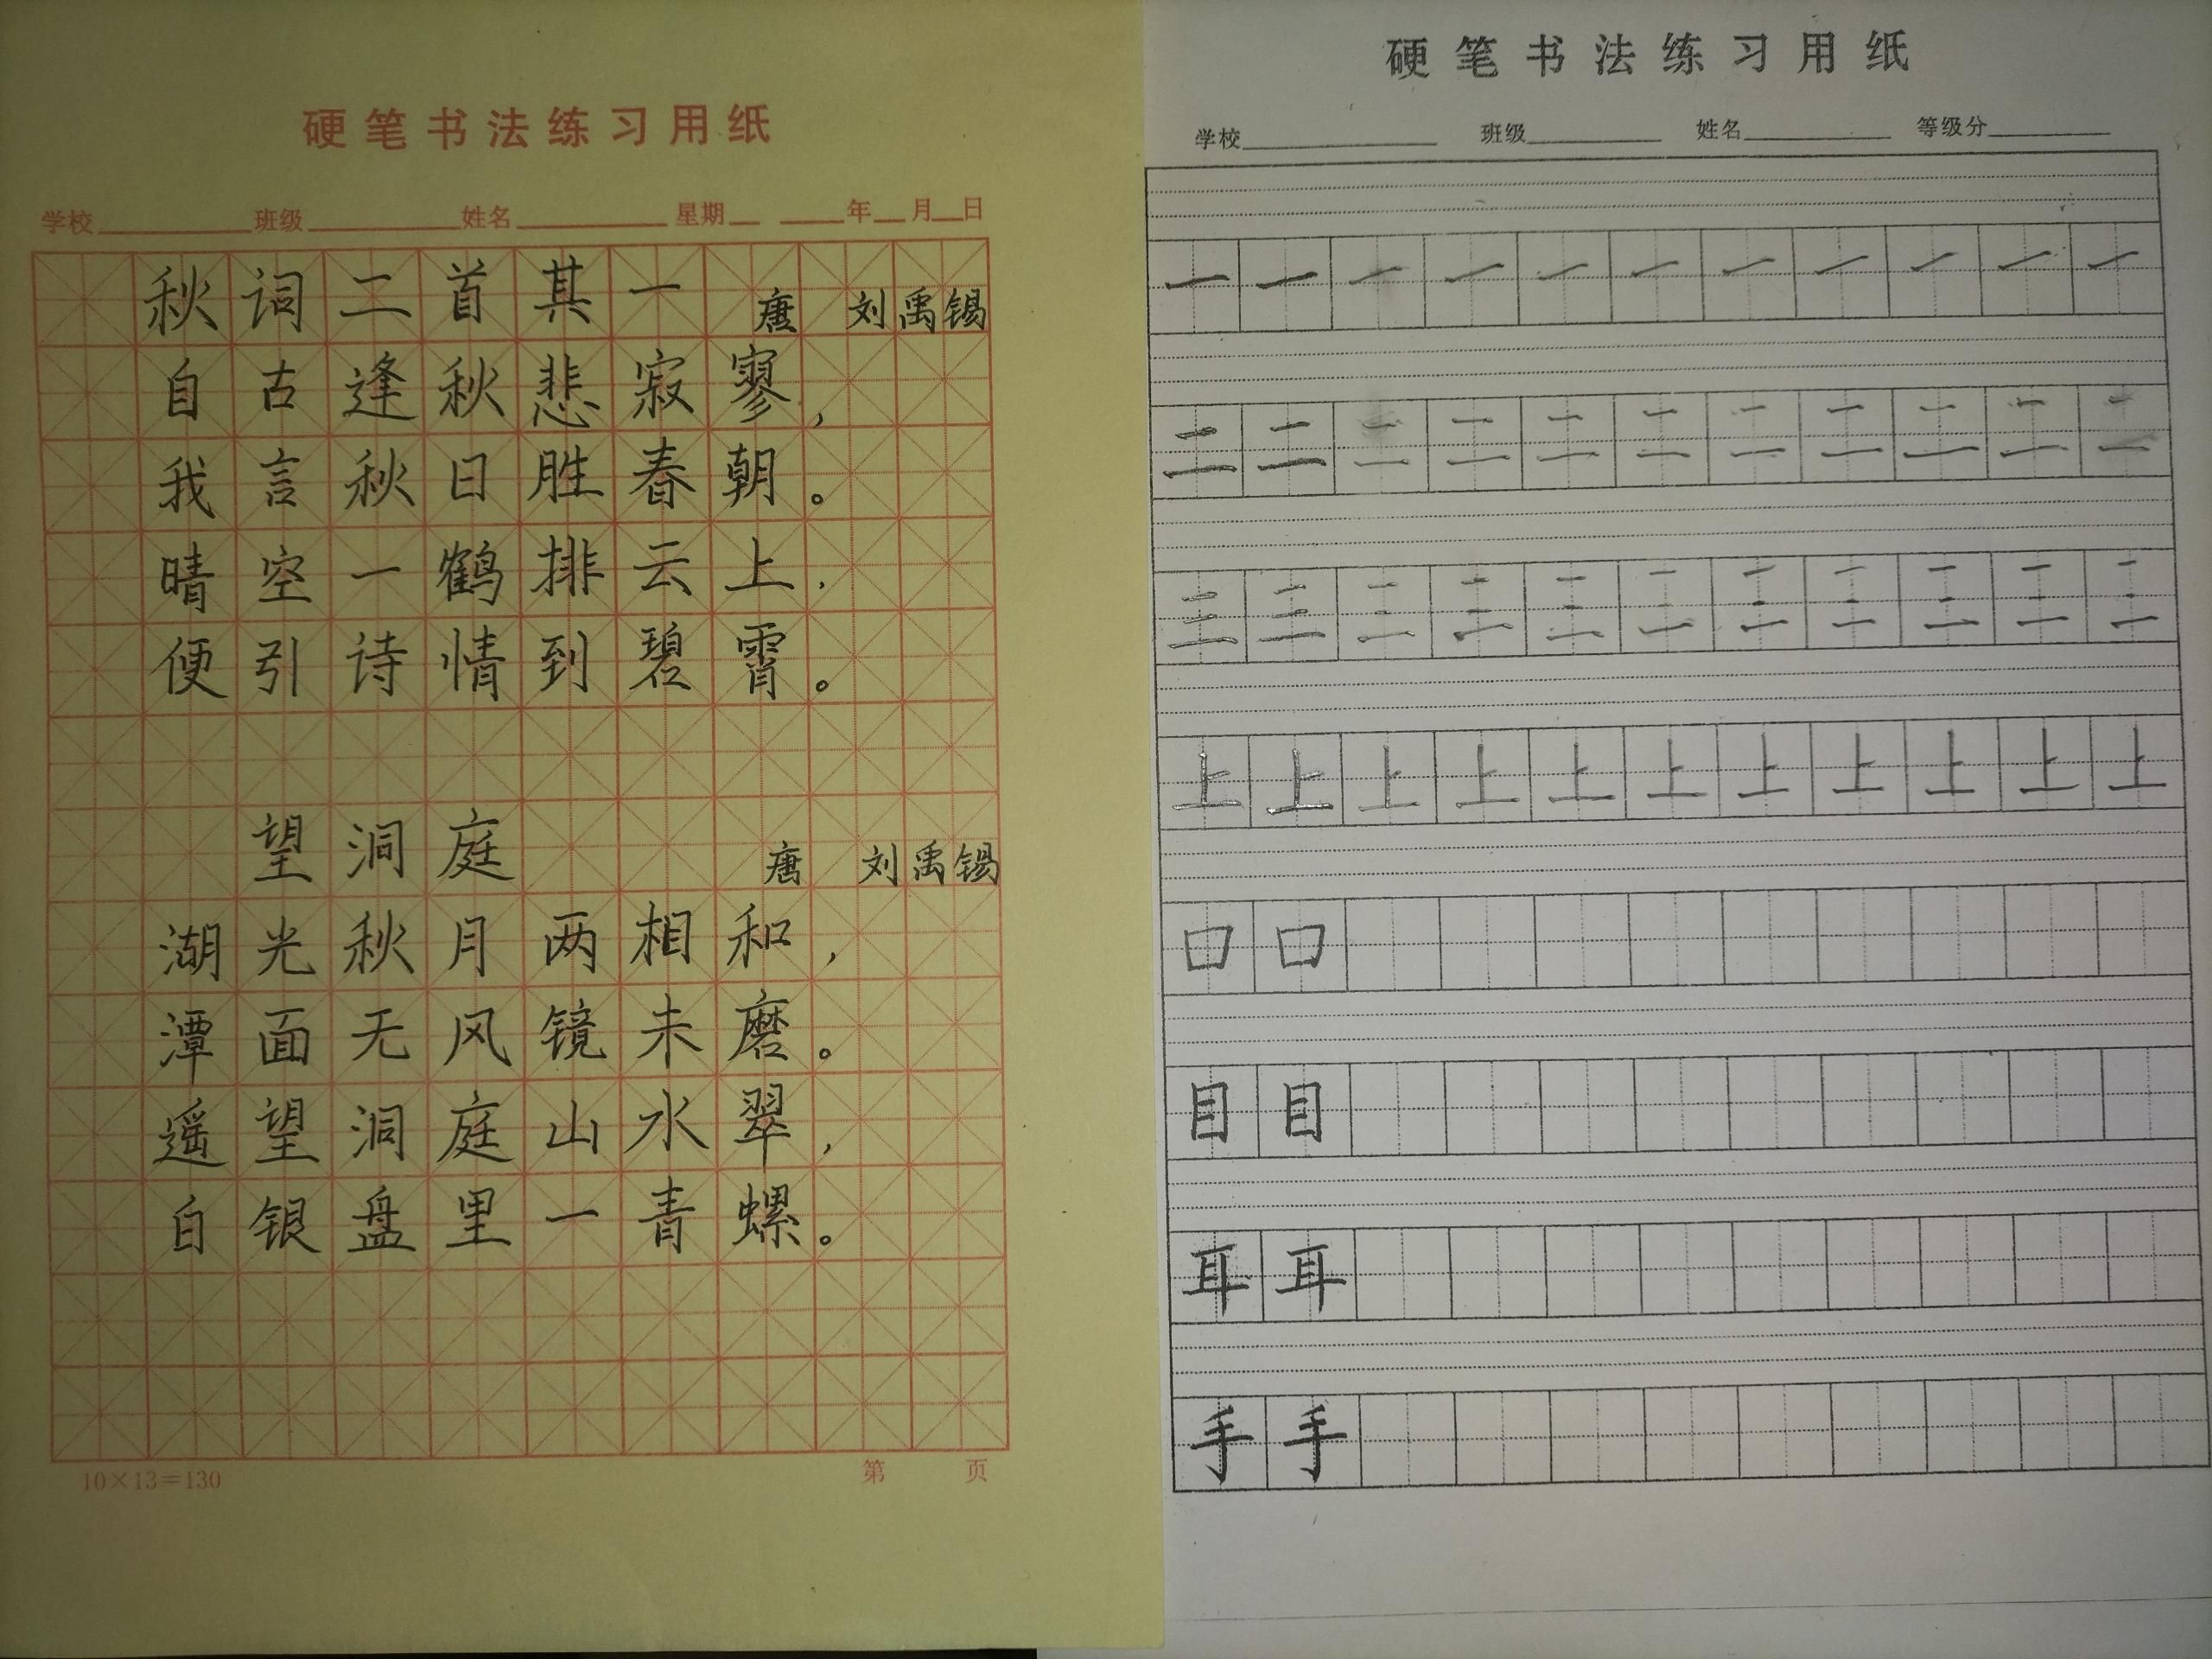 硬笔书法练习用纸
学校 班级 姓名 星期 年 月 日
秋词二首其一 唐 刘禹锡
自古逢秋悲寂寥，
我言秋日胜春朝。
晴空一鹤排云上，
便引诗情到碧霄。
望洞庭 唐 刘禹锡
湖光秋月两相和，
潭面无风镜未磨。
遥望洞庭山水翠，
白银盘里一青螺。
10×13=130 第 页
硬笔书法练习用纸
学校 班级 姓名 等级分
一一一一一一一一一一一
二二二二二二二二二二二
三三三三三三三三三三三
上上上上上上上上上上上
口口
目目
耳耳
手手